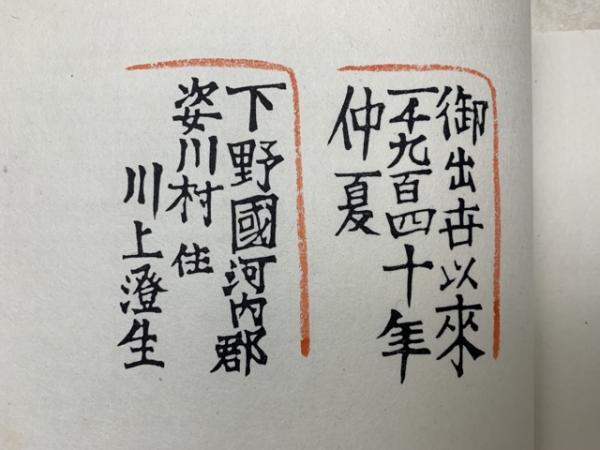 御出世以來
一千九百四十年
仲夏
下野國河內郡
姿川村住
川上澄生